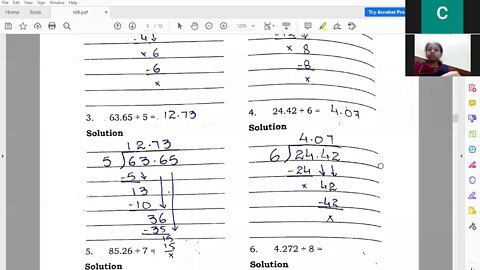 File Edit View Sign Window Help
Home Tools M8.pdf
Try Acrobat Pro
C
5 / 12
125%
-4↓
× 6
-6
×
× 8
-8
×
3. 63.65 ÷ 5 = 12.73
Solution
12.73
5 ) 63.65
-5↓
13
-10
36
-35
15
15
×
4. 24.42 ÷ 6 = 4.07
Solution
4.07
6 ) 24.42
-24↓↓
× 42
-42
×
5. 85.26 ÷ 7 =
Solution
6. 4.272 ÷ 8 =
Solution